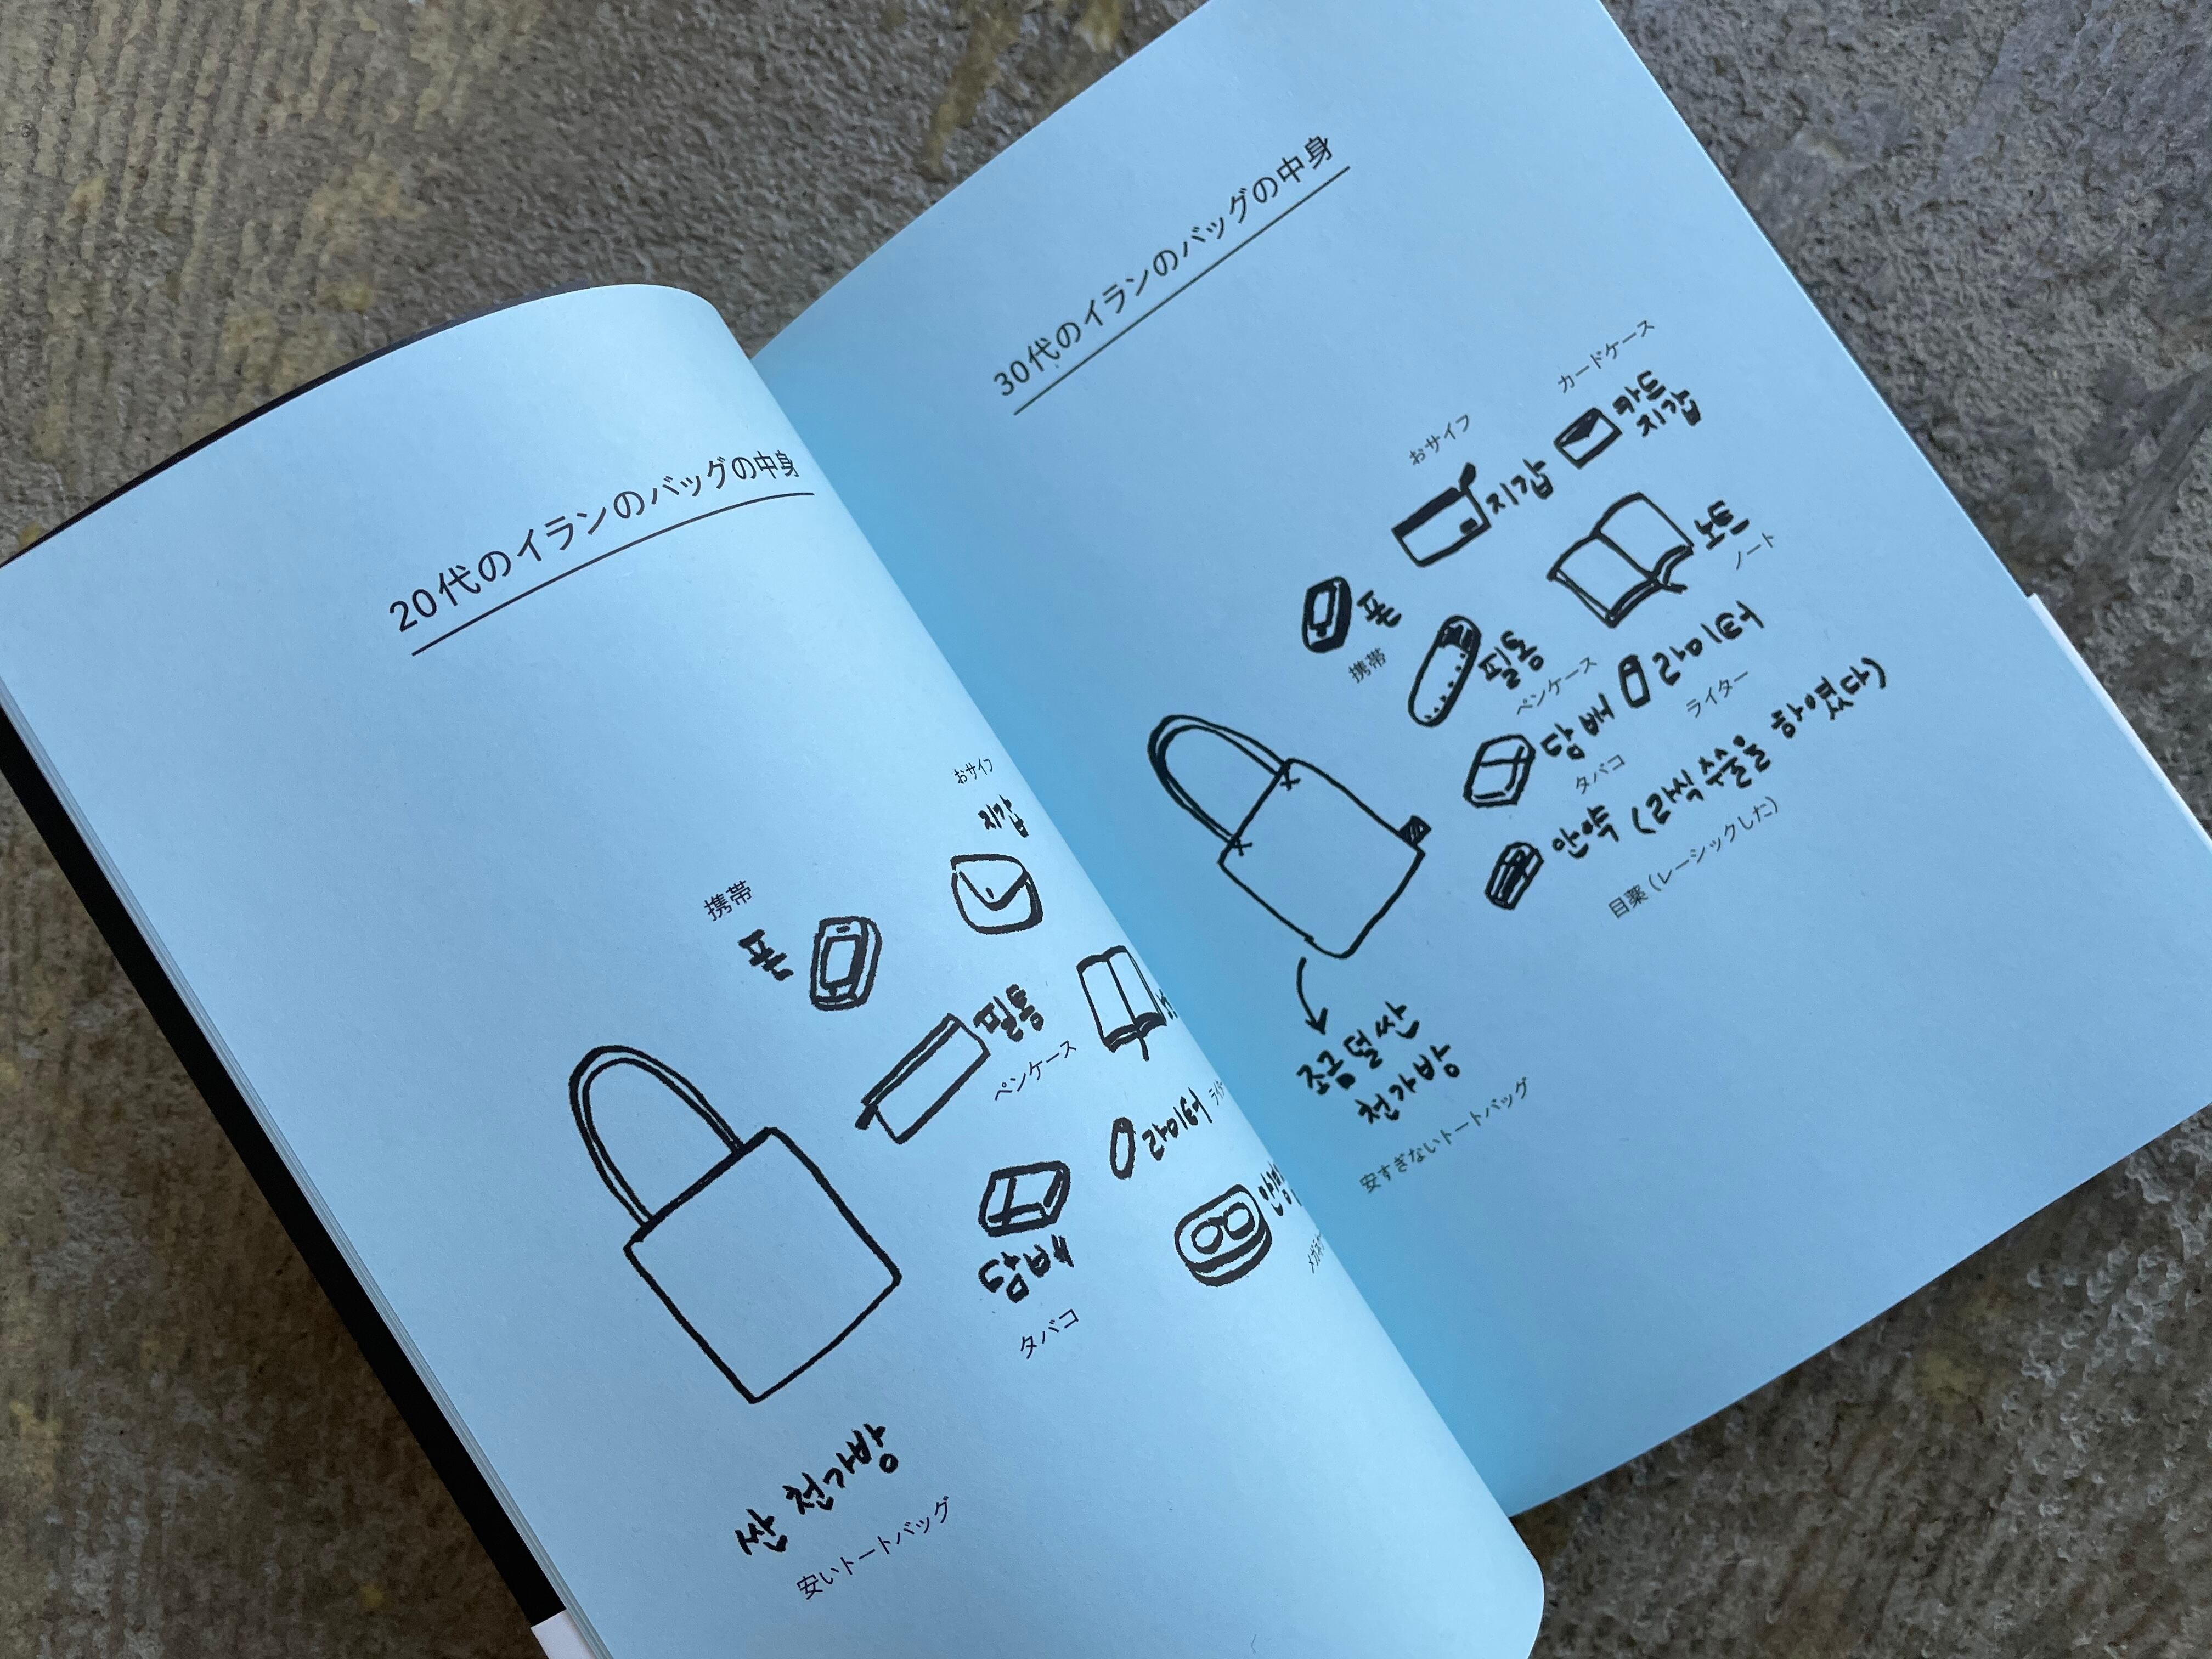 20代のイランのバッグの中身
おサイフ
지갑
携帯
폰
필통
ペンケース
라이터
담배
タバコ
싼 천가방
安いトートバッグ
30代のイランのバッグの中身
カードケース
카드
지갑
おサイフ
지갑
노트
ノート
폰
携帯
필통
ペンケース
라이터
ライター
담배
タバコ
안약 (라식 수술을 하였다)
目薬 (レーシックした)
조금 덜 싼
천가방
安すぎないトートバッグ